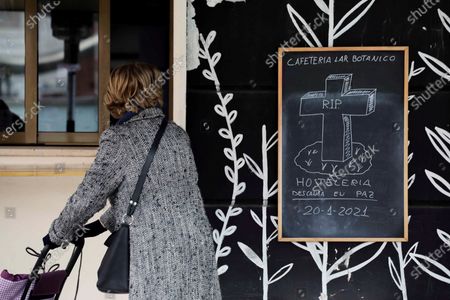 CAFETERIA LAR BOTANICO
RIP
HOSTELERIA
DESCANSA EN PAZ
20-1-2021
shutterstock